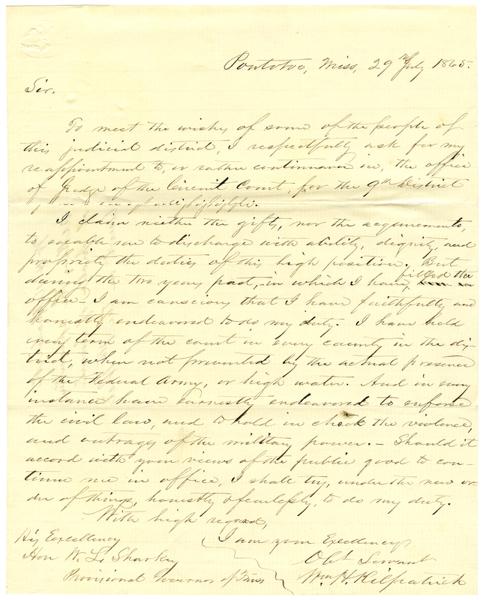 Pontotoc, Miss, 29th July 1865.
Sir.
To meet the wishes of some of the people of
this judicial district, I respectfully ask for my
reappointment to, or rather continuance in, the office
of Judge of the Circuit Court, for the 9th District
I claim neither the gifts, nor the acquirements,
to enable me to discharge with ability, dignity and
propriety the duties of this high position. But
during the two years past, in which I have filled the
office - I am conscious that I have faithfully and
honestly endeavored to do my duty. I have held
every term of the court in every county in the dis-
trict, when not prevented by the actual presence
of the Federal Army, or high water. And in every
instance have earnestly endeavored to enforce
the civil law, and to hold in check the violence,
and outrages of the military power. - Should it
accord with your views of the public good to con-
tinue me in office, I shall try, under the new or-
der of things, honestly & fearlessly, to do my duty.
With high regard,
I am your Excellency's
His Excellency
Obt Servant
Hon W. L. Sharkey
Wm. H. Kilpatrick
Provisional Governor of Miss